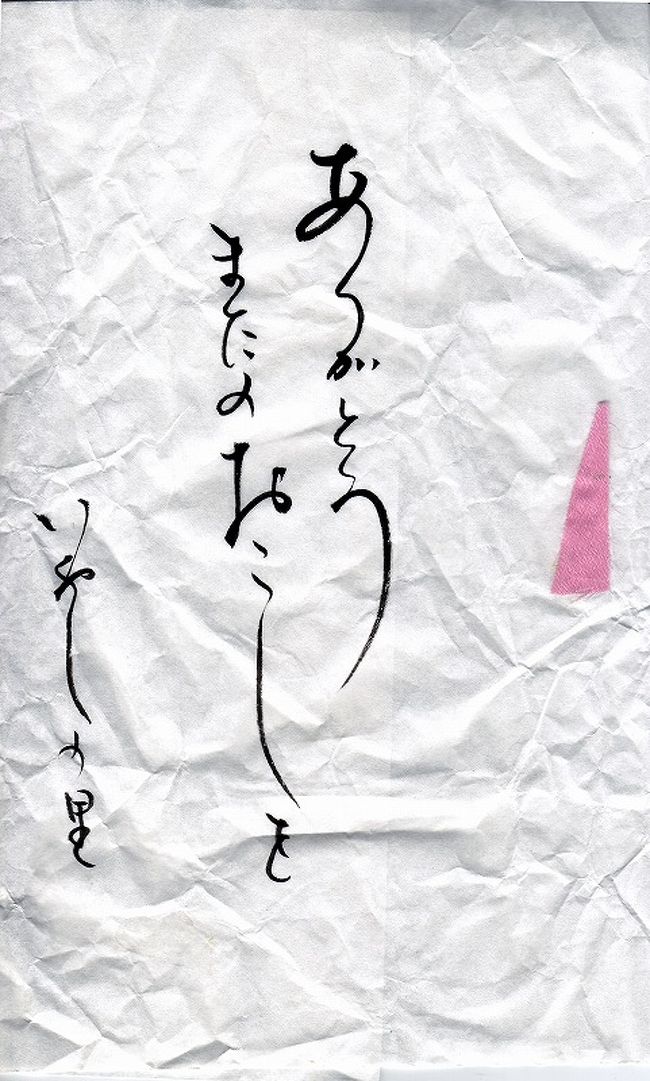 ありがとう
またのおこしを
いやしの里